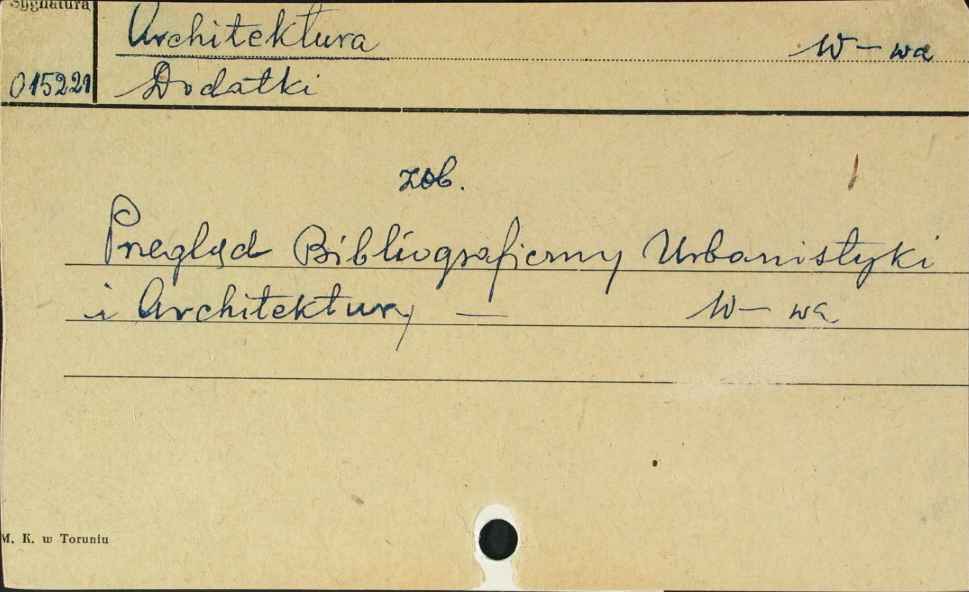 Sygnatura
Architektura W-wa
015221 Dodatki
zob.
Przegląd Bibliograficzny Urbanistyki
i Architektury — W-wa
M. K. w Toruniu